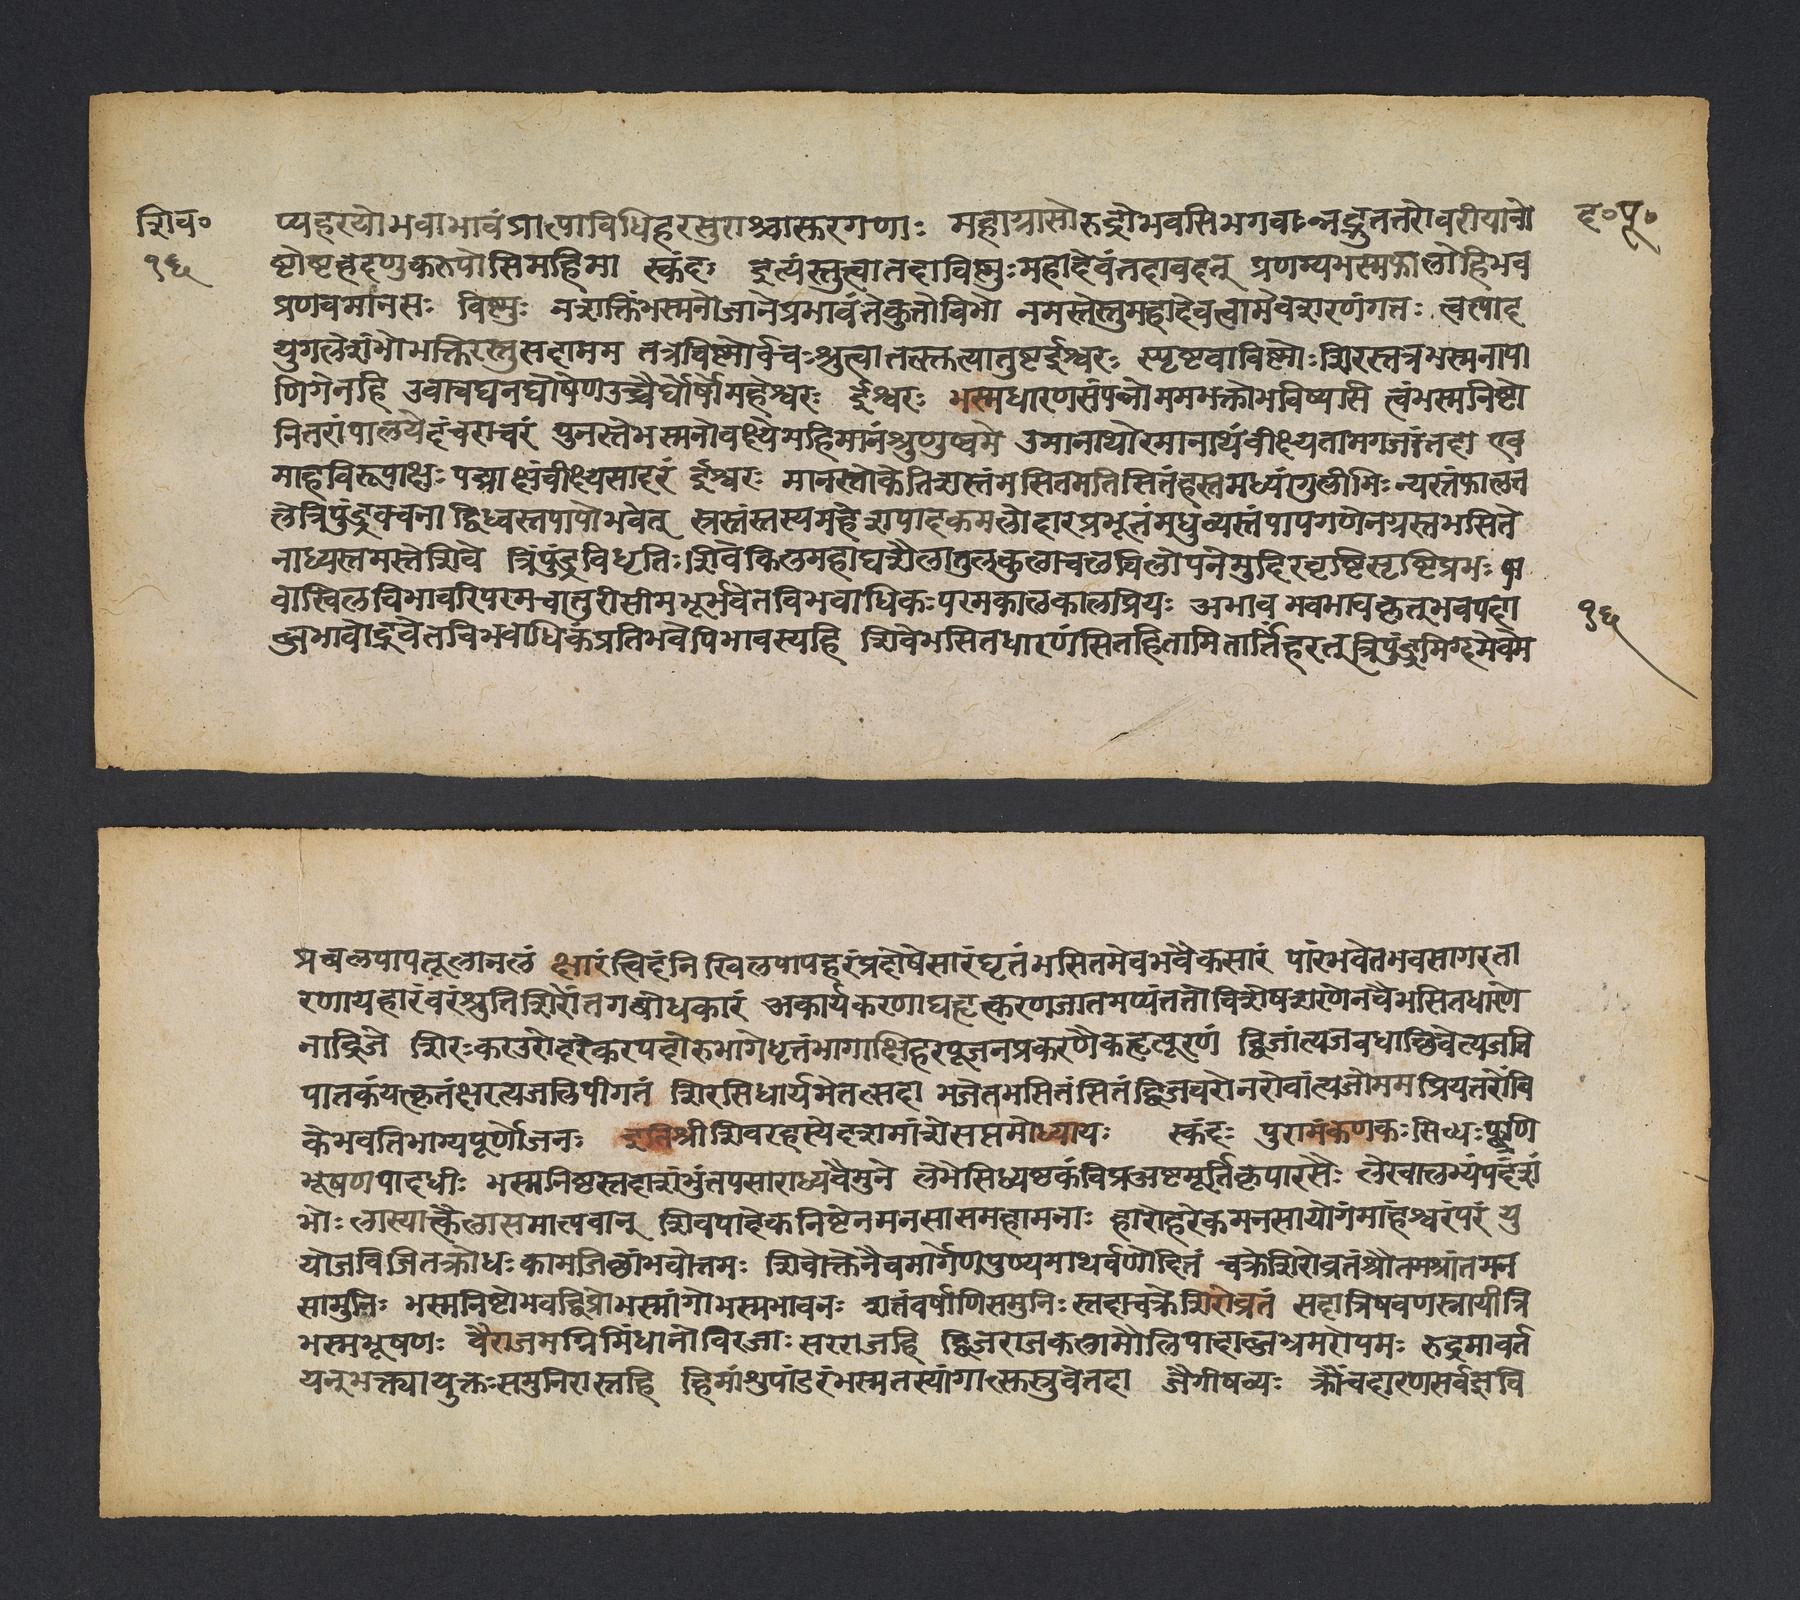 शिव॰
१६
द॰पू॰
प्यहरयोभवाभावं विधिहरसुराश्चास्करगणाः महाग्रासोरुद्रोभवसिभगवान्नद्भुततरोवरीयानो
स्कंदः इत्थंस्तुत्वातदाविष्णुःमहादेवंतदावदत् प्रणम्यभस्मफालोहिभव
प्रणवमानसः विष्णुः नशक्तिंभस्मनोजानेप्रभावंतेकुतोविभो नमस्तेस्तुमहादेवत्वामेवशरणंगतः त्वत्पाद
युगलेशंभोभक्तिरस्तुसदामम तत्रविष्णोर्वचःश्रुत्वातद्भक्त्यातुष्टईश्वरः स्पृष्टवाविष्णोःशिरस्तत्रभस्मनापा
णिगेनहि उवाचघनघोषेणउच्चैर्घोर्षोमहेश्वरः ईश्वरः भस्मधारणसंपन्नोममभक्तोभविष्यसि त्वंभस्मनिष्टो
नितरांपालयेदंचराचरं पुनस्तेभस्मनोवक्ष्येमहिमानंश्रुणुष्वमे उमानाथोरमानाथंवीक्ष्यतामगजांतदा एव
माहविरूपाक्षः पद्माक्षंवीक्ष्यसादरं ईश्वरः मानस्तोकेतिशस्तंमसितमतिसितंहस्तमध्यांगुलीभिः न्यस्तंफालत
लेत्रिपुंड्र विध्वस्तपापोभवेत् स्रस्तंस्तस्यमहेशपादकमलोदारप्रभूतंमधुव्यस्तंपापगणेनग्रस्तभसिते
नाध्यस्तमस्तेशिवे त्रिपुंड्रविधृतिःशिवंकिलमहाघशैलातुलकुलाचलविलोपनेमुदिरवृष्टिसृष्टिप्रभः
वोखिलविभावरिपरमचातुरीसीमभूर्भवेतविभवाधिकःपरमकालकालप्रियः अभाव
द्भवेतविभवाधिकंप्रतिभवेपिभावस्यहि शिवेभसितधारणंसितहितामितार्तिंहरत्
१६
प्रबलपापतूलानलं क्षारंत्विदंनिखिलपापहरंप्रदोषेसारंघृतंभसितमेवभवैकसारं पारंभवेतभवसागरता
रणायहारंवरंश्रुतिशिरोंतगबोधकारं अकार्यकरणाघहृत्करणजातमप्यंततोविशेषशरणेनवैभसितधारणे
नाद्विजे शिरःकरउरोदरेकरपदोरुभागेधृतंभागाक्षिहरपूजनप्रकरणैकहृत्पूरणं
पातकंयत्कृतंक्षरत्यजलिपीगतं शिरसिधार्यमेतत्सदा भजेतभसितंसितंद्विजवरोनरोवांत्यजोममप्रियतरोवि
केभवतिभाग्यपूर्णोजनः इतिश्रीशिवरहस्येदशमांशेसप्तमोध्यायः स्कंदः पुरामंकणकःसिध्धः
भूषणपादधीः भस्मनिष्ठस्तदाशंभुंतपसाराध्यवैमुने लेभेसिध्यष्टकंविप्रअष्टमूर्तिकृपारसैः
भोः लास्यात्कैलासमाप्तवान् शिवपादैकनिष्टेनमनसासमहामनाः हारोहरैकमनसायोगंमाहेश्वरंपरं यु
योजविजितक्रोधःकामजिछांभवोत्तमः शिवोक्तेनैवमार्गेणपुण्यमाथर्वणोदितं चक्रेशिरोव्रतंश्रौतमश्रांतमन
सामुनिः भस्मनिष्टोभवद्विप्रोभस्मांगोभस्मभावनः शतंवर्षाणिसमुनिःस्तदाचक्रेशिरोव्रतं सदात्रिषवणस्नायीत्रि
भस्मभूषणः वैराजमग्निमिंधानोविरजाःसरराजहि द्विजराजकलामौलिपादाब्जभ्रमरोपमः रुद्रमावर्त
यन्भक्त्यायुक्तःसमुनिरास्तहि हिमांशुपांडरंभस्मतस्यांगा जैगीषव्यः क्रौंचदारणसर्वज्ञवि